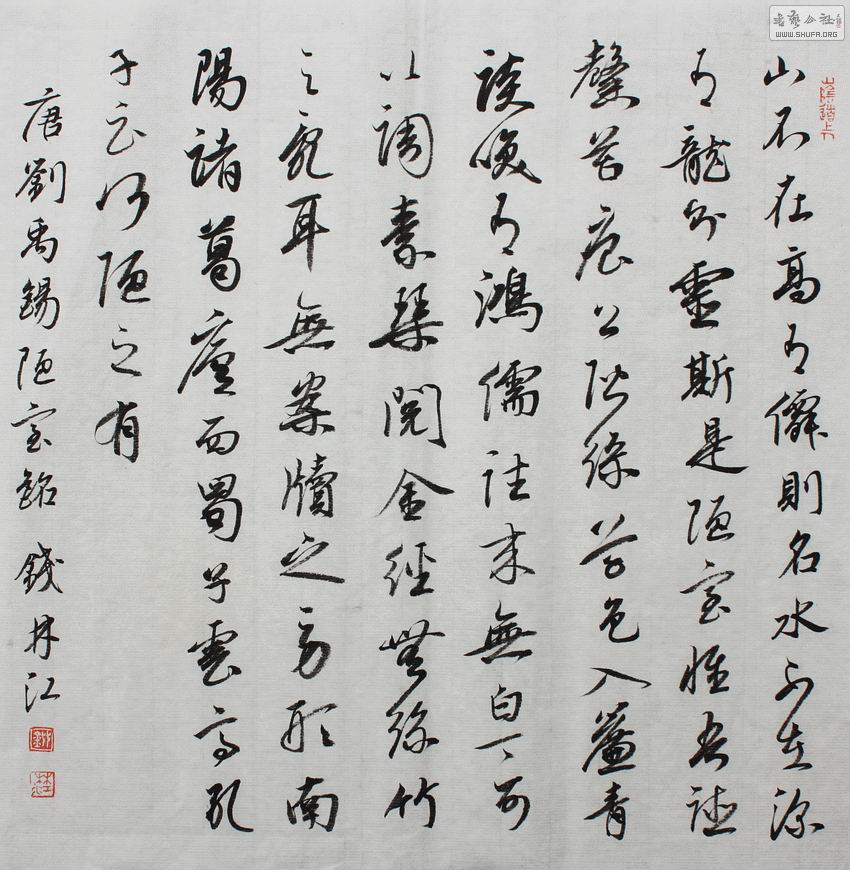 書藝公社
WWW.SHUFA.ORG
山陰道上
山不在高有僊則名水不在深
有龍則靈斯是陋室惟吾德
馨苔痕上階綠草色入簾青
談咲有鴻儒往來無白丁可
以調素琴閱金經無絲竹
之亂耳無案牘之勞形南
陽諸葛廬西蜀子雲亭孔
子云何陋之有
唐劉禹錫陋室銘 錢林江